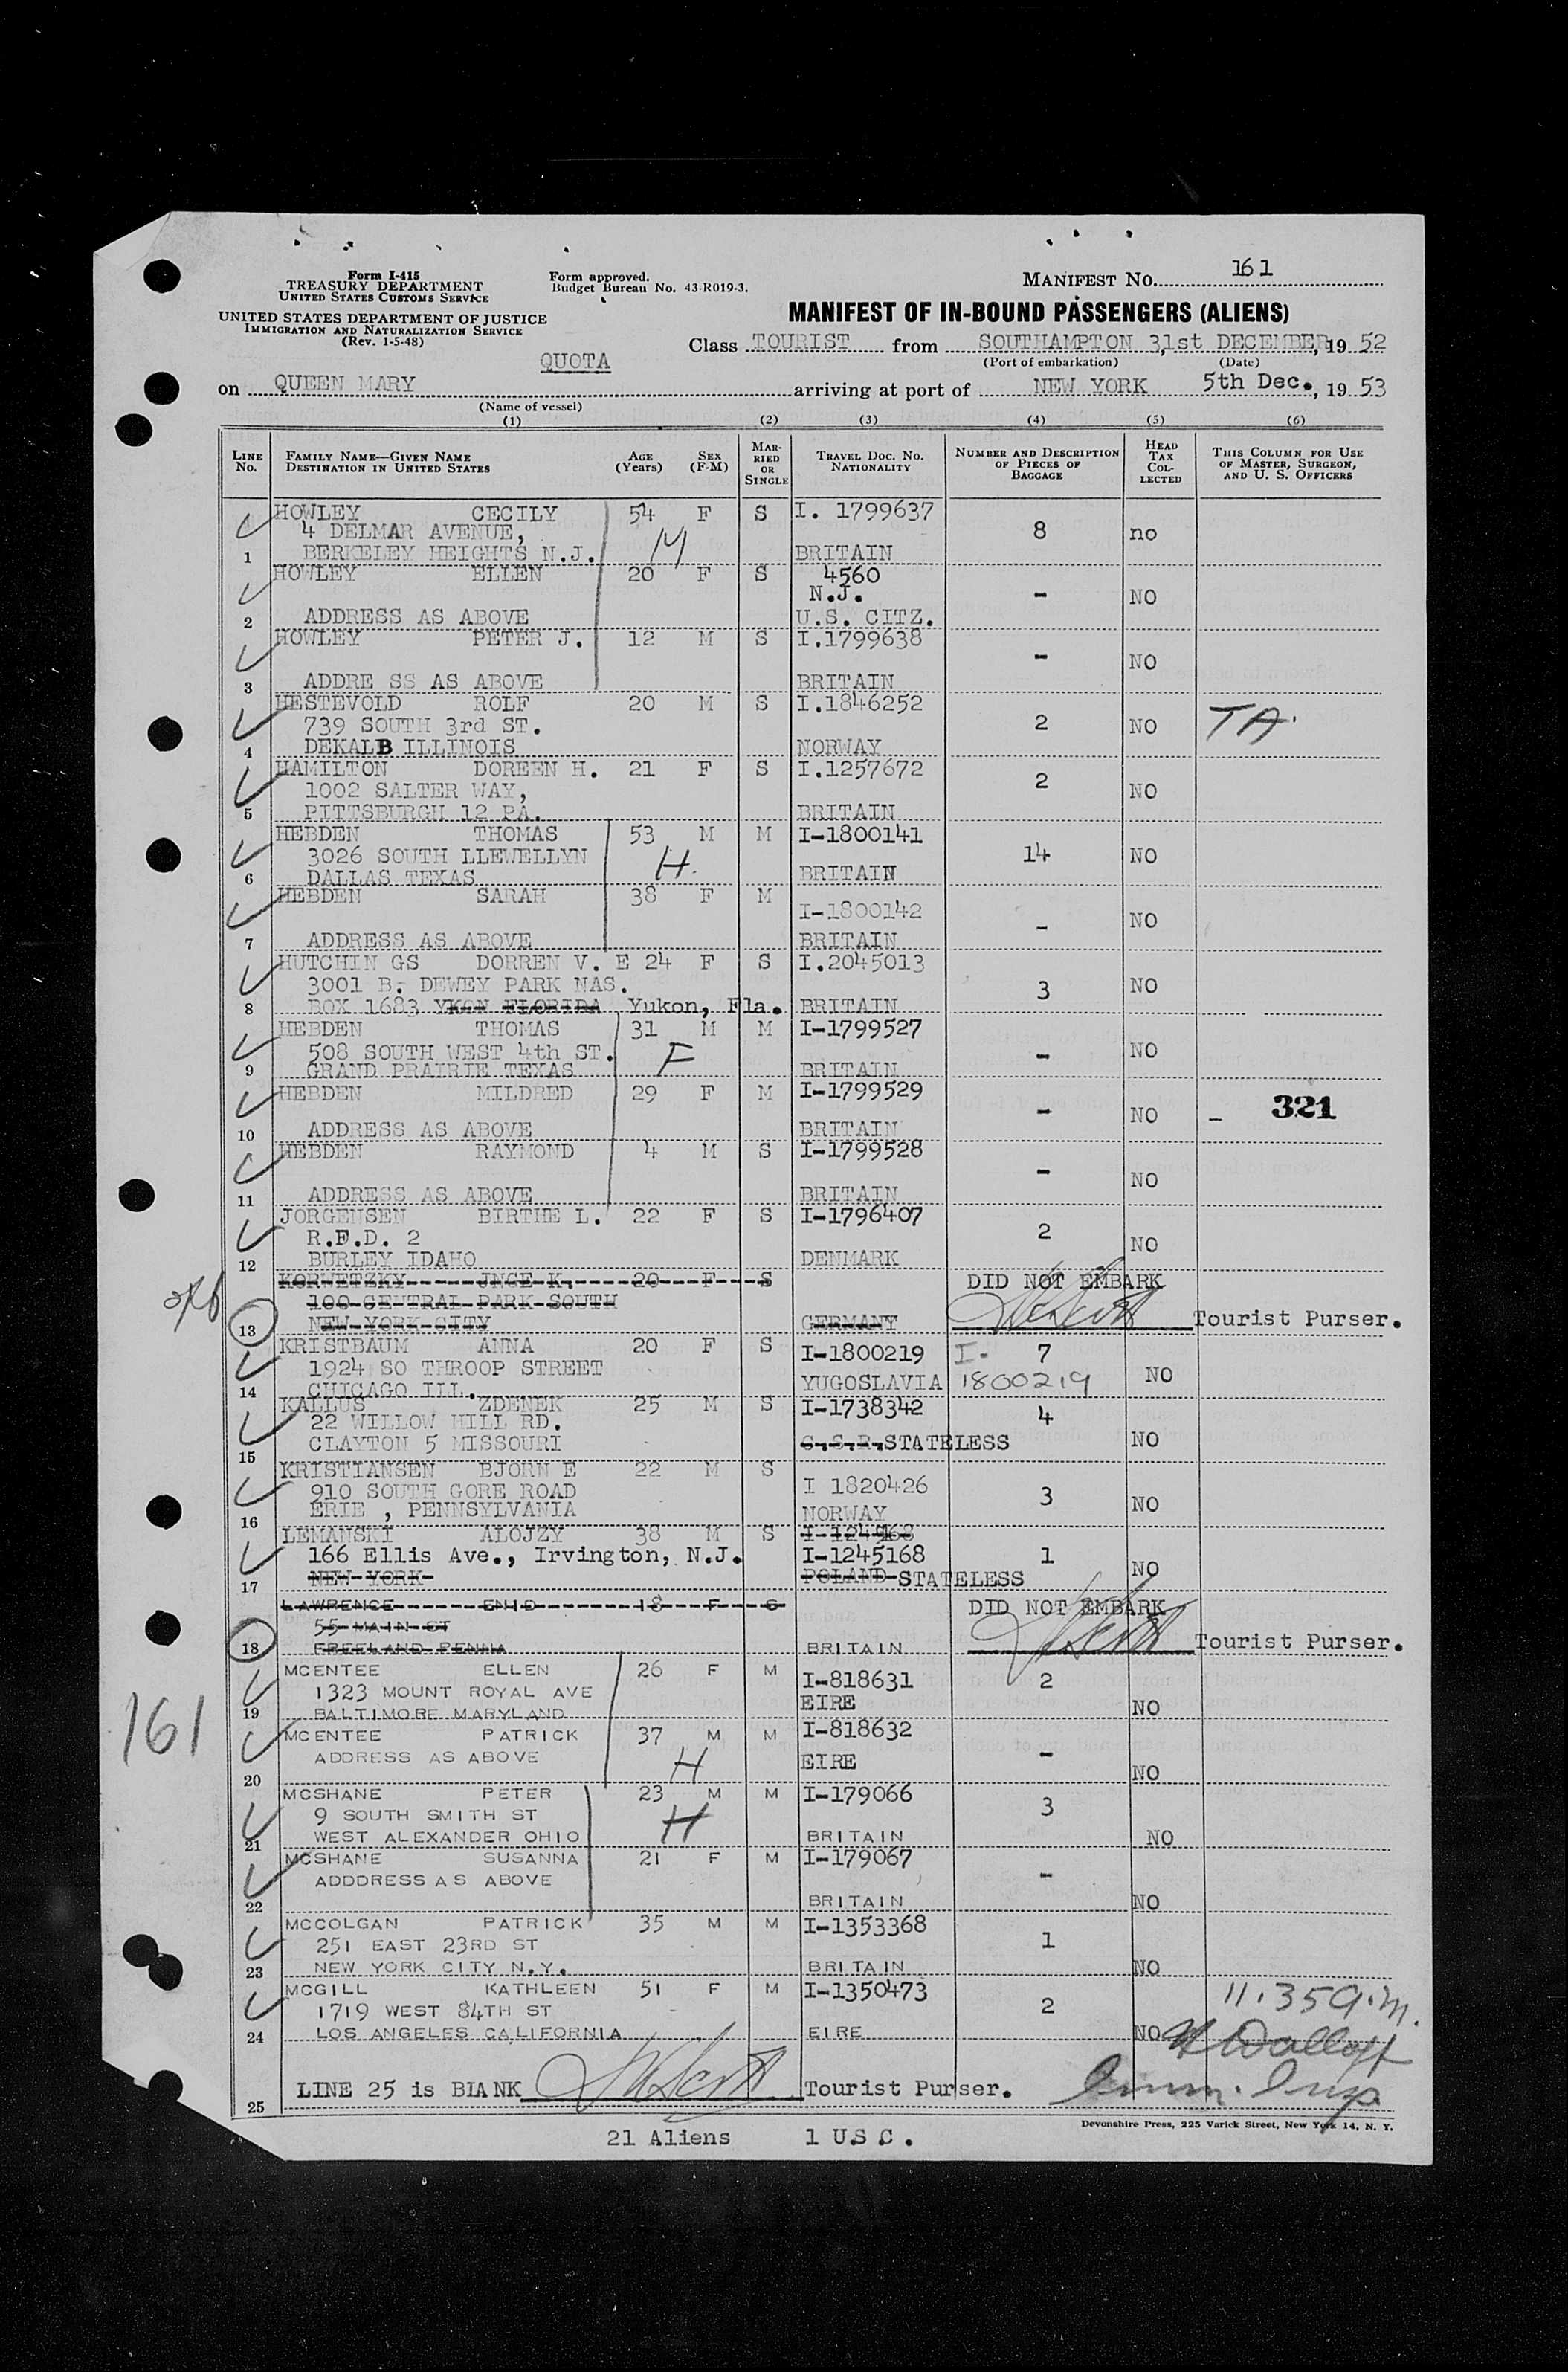 Form I-415
TREASURY DEPARTMENT
UNITED STATES CUSTOMS SERVICE
UNITED STATES DEPARTMENT OF JUSTICE
IMMIGRATION AND NATURALIZATION SERVICE
(Rev. 1-5-48)
Form approved.
Budget Bureau No. 43-R019-3.
MANIFEST No. 161
MANIFEST OF IN-BOUND PASSENGERS (ALIENS)
QUOTA
Class TOURIST from SOUTHAMPTON 31st DECEMBER, 19 52
(Port of embarkation) (Date)
on QUEEN MARY arriving at port of NEW YORK 5th Dec., 19 53
(Name of vessel)
(1) (2) (3) (4) (5) (6)
LINE No. FAMILY NAME—GIVEN NAME DESTINATION IN UNITED STATES AGE (Years) SEX (F-M) MARRIED OR SINGLE TRAVEL DOC. NO. NATIONALITY NUMBER AND DESCRIPTION OF PIECES OF BAGGAGE HEAD TAX COLLECTED THIS COLUMN FOR USE OF MASTER, SURGEON, AND U. S. OFFICERS
HOWLEY CECILY 54 F S I. 1799637
4 DELMAR AVENUE, M 8 no
1 BERKELEY HEIGHTS N.J. BRITAIN
HOWLEY ELLEN 20 F S 4560
N.J. - NO
2 ADDRESS AS ABOVE U.S. CITZ.
HOWLEY PETER J. 12 M S I.1799638
- NO
3 ADDRE SS AS ABOVE BRITAIN
HESTEVOLD ROLF 20 M S I.1846252
739 SOUTH 3rd ST. 2 NO TA.
4 DEKALB ILLINOIS NORWAY
HAMILTON DOREEN H. 21 F S I.1257672
1002 SALTER WAY, 2 NO
5 PITTSBURGH 12 PA. BRITAIN
HEBDEN THOMAS 53 M M I-1800141
3026 SOUTH LLEWELLYN H. 14 NO
6 DALLAS TEXAS BRITAIN
HEBDEN SARAH 38 F M
I-1800142 - NO
7 ADDRESS AS ABOVE BRITAIN
HUTCHIN GS DORREN V. E 24 F S I.2045013
3001 B. DEWEY PARK NAS. 3 NO
8 BOX 1683 YKON FLORIDA Yukon, Fla. BRITAIN
HEBDEN THOMAS 31 M M I-1799527
508 SOUTH WEST 4th ST. F - NO
9 GRAND PRAIRIE TEXAS BRITAIN
HEBDEN MILDRED 29 F M I-1799529
- NO - 321
10 ADDRESS AS ABOVE BRITAIN
HEBDEN RAYMOND 4 M S I-1799528
- NO
11 ADDRESS AS ABOVE BRITAIN
JORGENSEN BIRTHE L. 22 F S I-1796407
R.F.D. 2 2 NO
12 BURLEY IDAHO DENMARK
KORWETZKY INGE K. 20 F S DID NOT EMBARK
100 CENTRAL PARK SOUTH
13 NEW YORK CITY GERMANY Tourist Purser.
KRISTBAUM ANNA 20 F S I-1800219 I- 7
1924 SO THROOP STREET YUGOSLAVIA 1800219 NO
14 CHICAGO ILL.
KALLUS ZDENEK 25 M S I-1738342 4
22 WILLOW HILL RD.
15 CLAYTON 5 MISSOURI C.S.R. STATELESS NO
KRISTIANSEN BJORN E 22 M S
910 SOUTH GORE ROAD I 1820426 3 NO
16 ERIE , PENNSYLVANIA NORWAY
LEMANSKI ALOJZY 38 M S
166 Ellis Ave., Irvington, N.J. I-1245168 1 NO
17 NEW YORK POLAND STATELESS
LAWRENCE ENID 18 F S DID NOT EMBARK
55 MAIN ST
18 FREELAND PENNA BRITAIN Tourist Purser.
MCENTEE ELLEN 26 F M I-818631 2
1323 MOUNT ROYAL AVE EIRE NO
19 BALTIMORE MARYLAND
161
MCENTEE PATRICK 37 M M I-818632
ADDRESS AS ABOVE H EIRE - NO
20
MCSHANE PETER 23 M M I-179066
9 SOUTH SMITH ST H 3
21 WEST ALEXANDER OHIO BRITAIN NO
MCSHANE SUSANNA 21 F M I-179067
ADDDRESS AS ABOVE -
22 BRITAIN NO
MCCOLGAN PATRICK 35 M M I-1353368
251 EAST 23RD ST 1
23 NEW YORK CITY N.Y. BRITAIN NO
MCGILL KATHLEEN 51 F M I-1350473 11.35 a.m.
1719 WEST 84TH ST 2
24 LOS ANGELES CALIFORNIA EIRE NO
25 LINE 25 is BLANK Tourist Purser. Imm. Insp
Devonshire Press, 225 Varick Street, New York 14, N. Y.
21 Aliens 1 U S C .